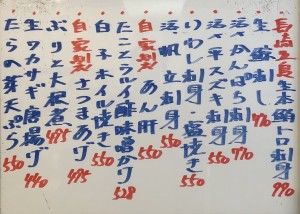 長崎五島生本鮪トロ刺身 990
生鯨刺し 770
活〆かんぱち刺身 770
活〆平スズキ刺身 550
活帆立刺身 550
いわし刺身・塩焼き 550
自家製あん肝 550
たことニライ酢味噌かけ 528
白子ホイル焼き
自家製さつまあげ 495
ぶりと大根煮 495
生ワカサギ唐揚げ 440
たらの芽天ぷら 550